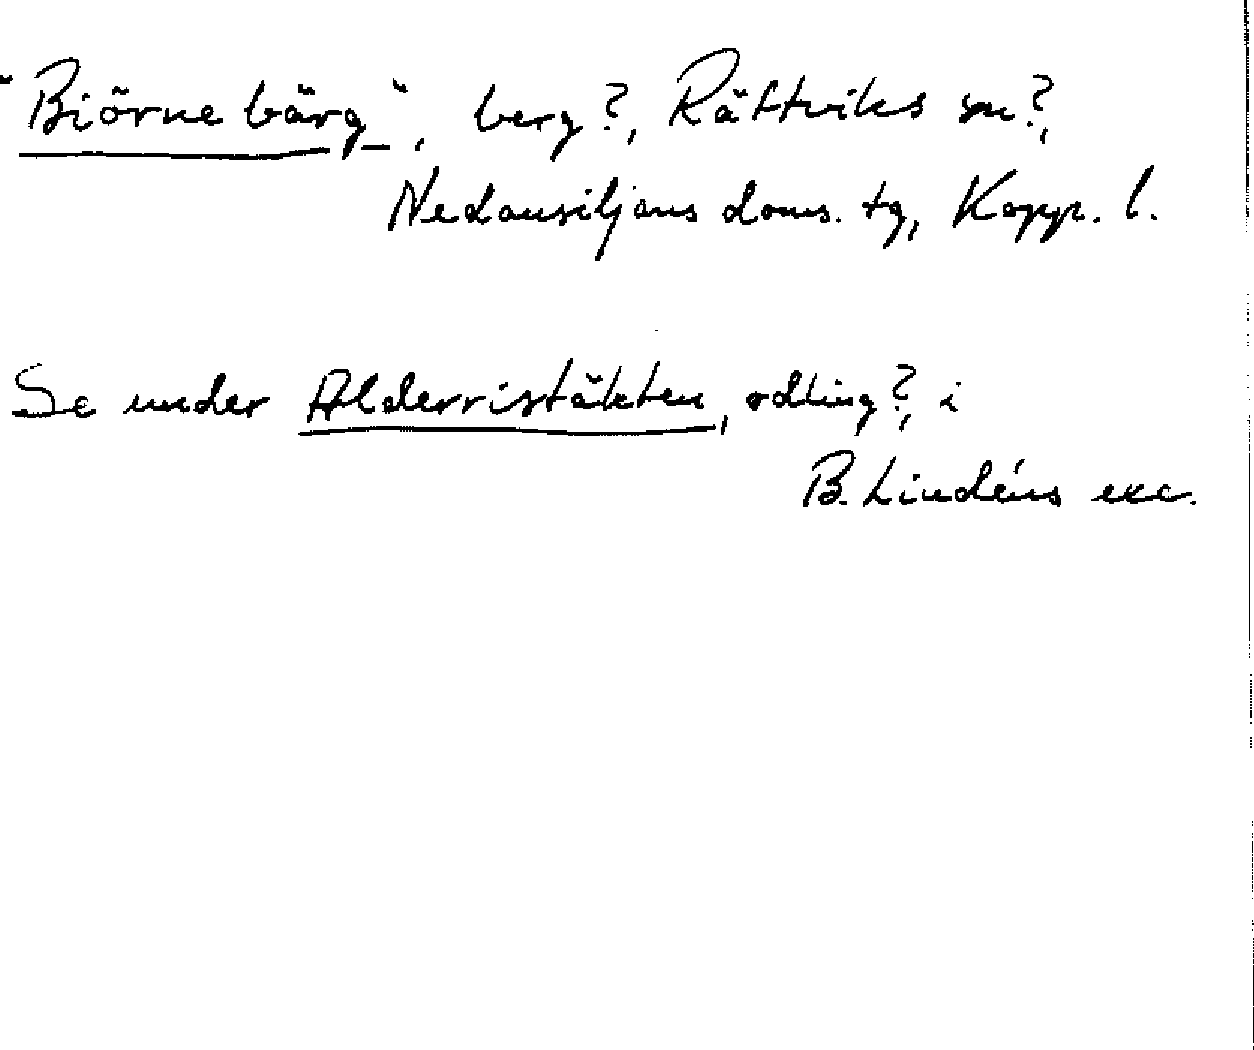 "Biörne bärg_", berg?, Rättviks sn?,
Nedansiljans doms. tg, Kopp. l.
Se under Alderristäkten, odling?, i
B. Lindéns exc.